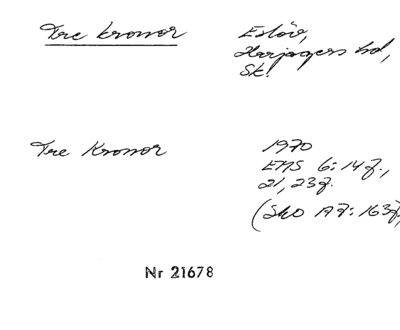 Tre kronor
Eslöv,
Harjagers hd,
Sk.
Tre Kronor
1970
EMS 6:14f.,
21, 23f.
(SkO A7:163f,
Nr 21678